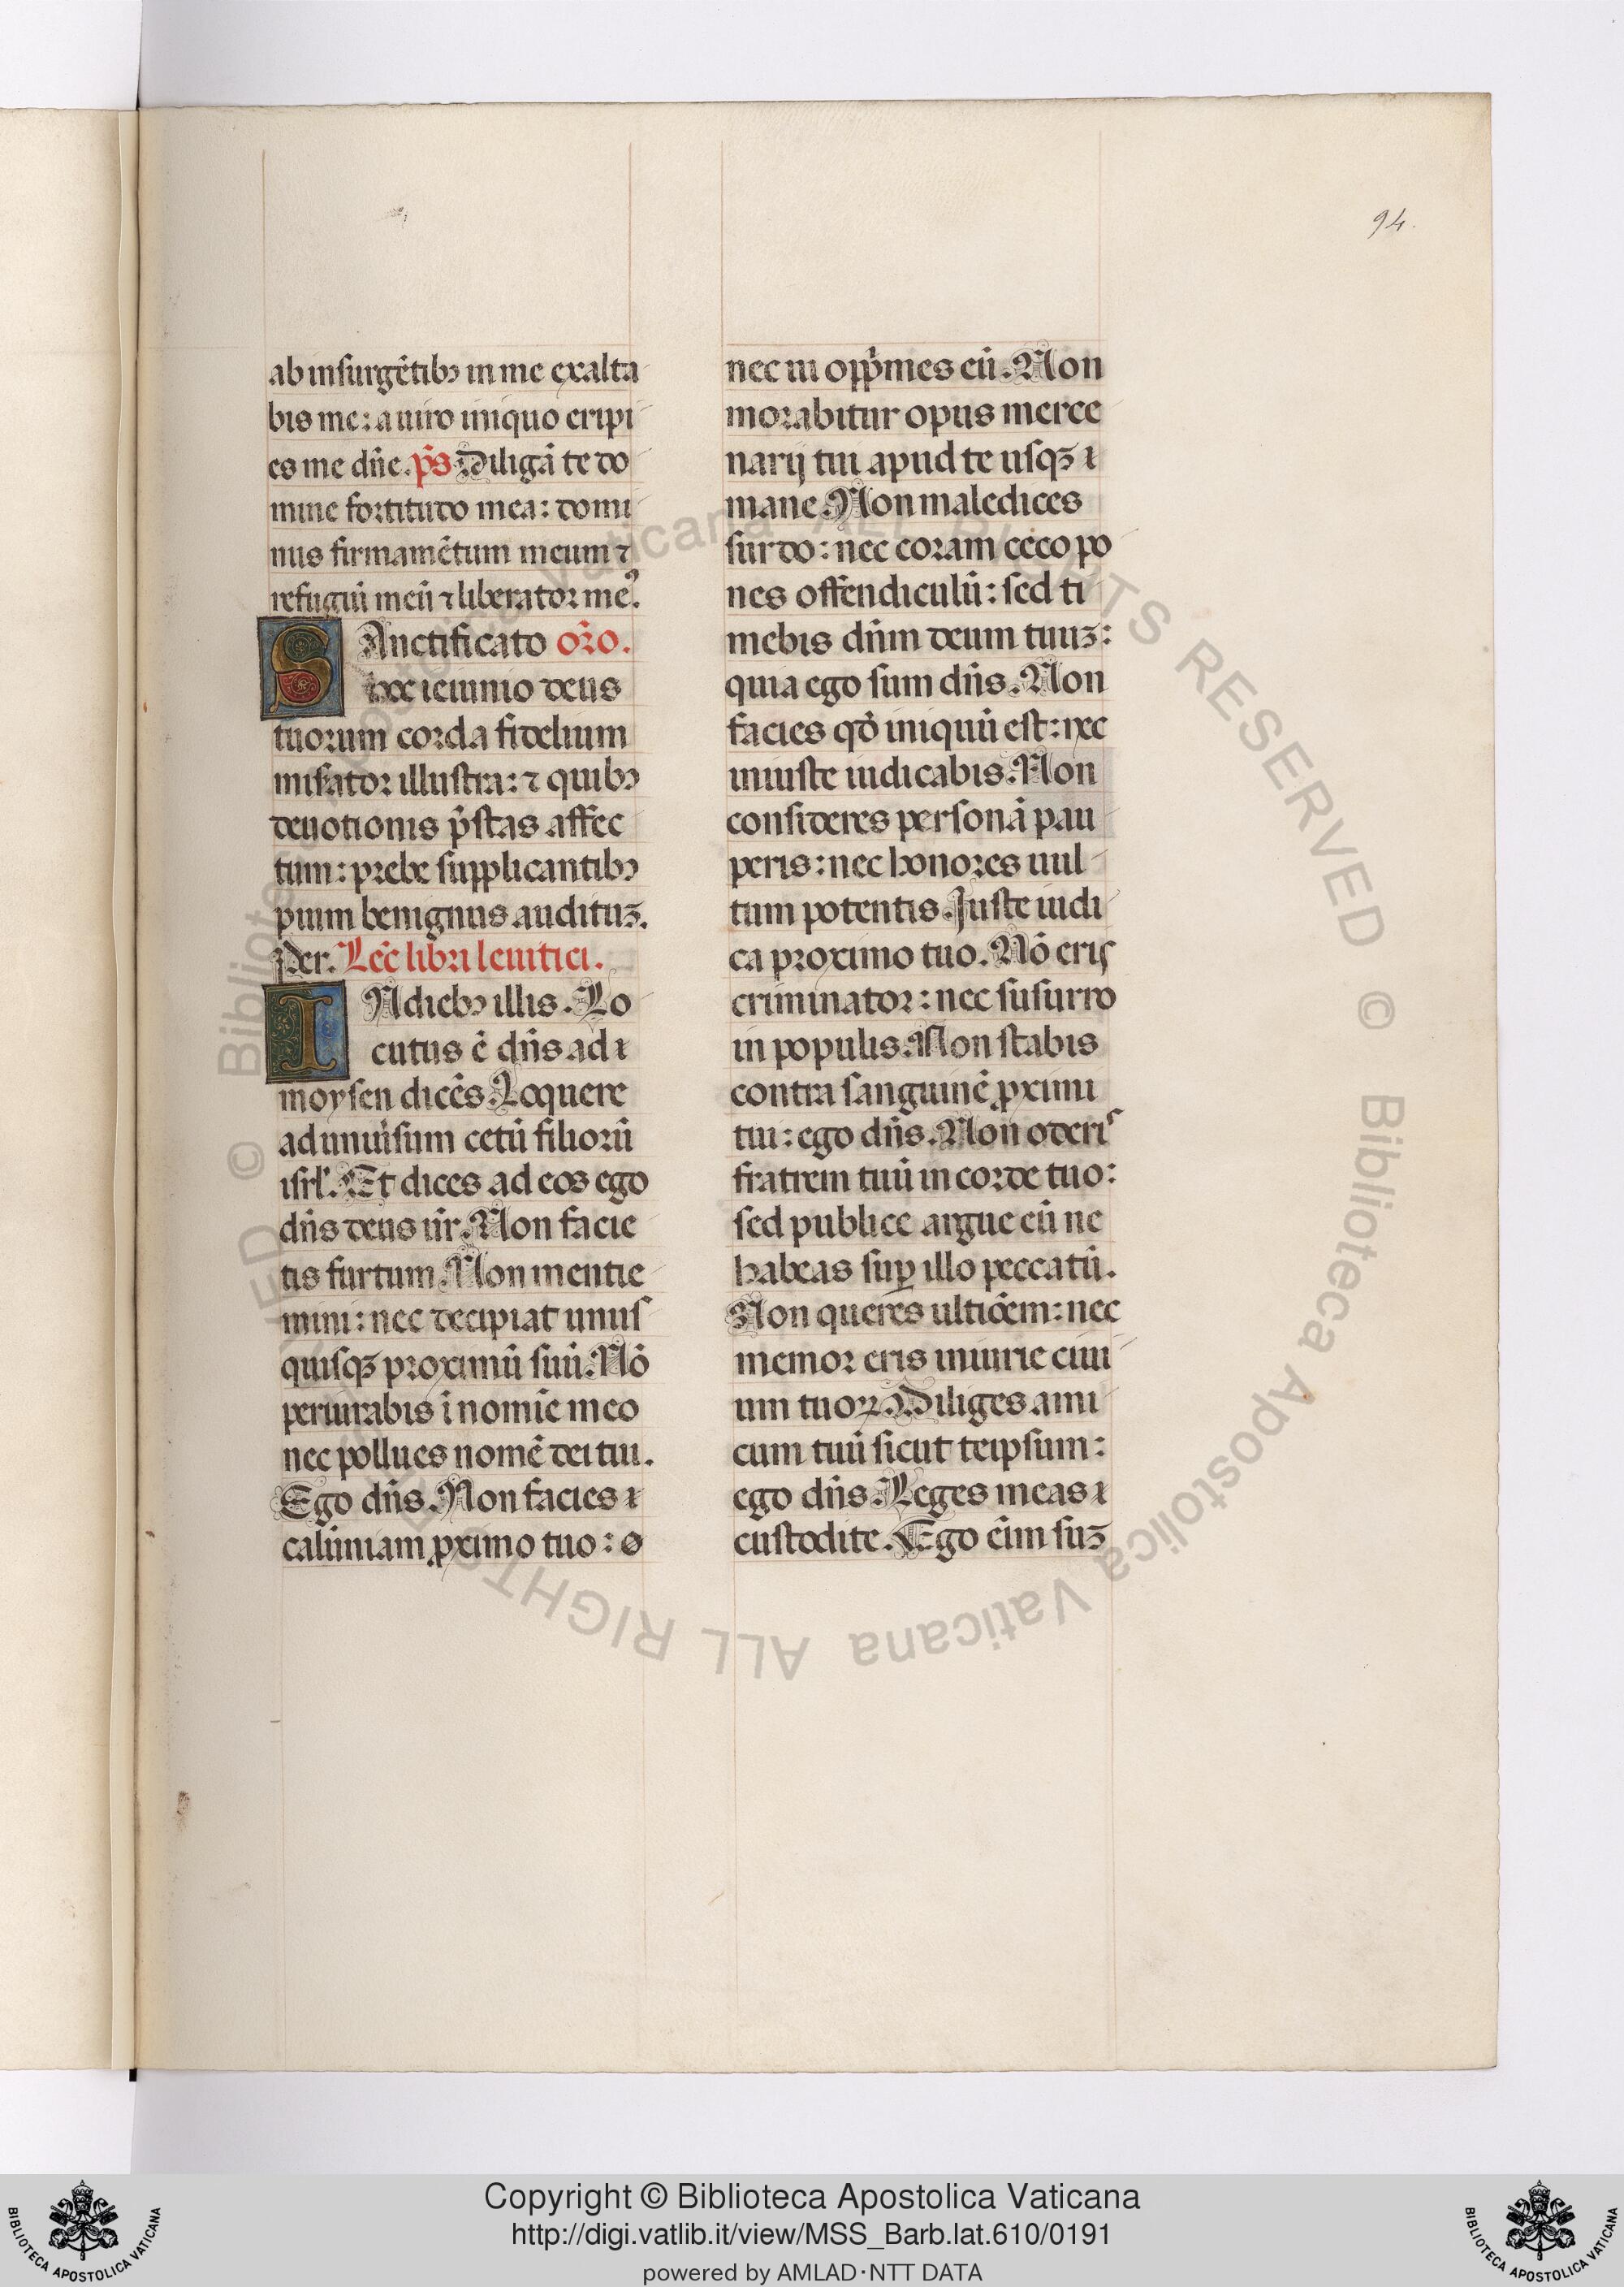 94.
ab insurgẽtibꝫ in me exalta
bis me: a uiro iniquo eripi
es me dñe. p̃s. Diligã te do
mine fortitudo mea: domi
nus firmamẽtum meum ⁊
refugiũ meũ ⁊ liberator meꝰ.
SAnctificato oro.
hoc ieiunio deus
tuorum corda fidelium
misator illustra: ⁊ quibꝫ
deuotionis p̃stas affec
tum: prebe supplicantibꝫ
pium benignus audituꝫ.
Per. Lec̃ libri leuitici.
INdiebꝫ illis. Lo
cutus ẽ dñs ad
moysen dicẽs. Loquere
ad uniũsum cetũ filiorũ
isrl'. Et dices ad eos ego
dñs deus ũr. Non facie
tis furtum. Non mentie
mini: nec decipiat unus
quisqꝫ proximũ suũ. Nõ
periurabis ĩ nomĩe meo
nec pollues nomẽ dei tui.
Ego dñs. Non facies
calũniam ꝓximo tuo:
nec ui opp̃mes eũ. Non
morabitur opus merce
narij tui apud te usqꝫ
mane. Non maledices
surdo: nec coram ceco po
nes offendiculũ: sed ti
mebis dñm deum tuuꝫ:
quia ego sum dñs. Non
facies qd̃ iniquũ est: nec
iniuste iudicabis. Non
consideres personã pau
peris: nec honores uul
tum potentis. Juste iudi
ca proximo tuo. Nõ eris
criminator: nec susurro
in populis. Non stabis
contra sanguinẽ ꝓximi
tui: ego dñs. Non oderis
fratrem tuũ in corde tuo:
sed publice argue eũ ne
habeas suꝑ illo peccatũ.
Non queres ultiõem: nec
memor eris iniurie ciui
um tuoꝝ. Diliges ami
cum tuũ sicut teipsum:
ego dñs. Leges meas
custodite. Ego eĩm suꝫ
© Biblioteca Apostolica Vaticana ALL RIGHTS RESERVED © Biblioteca Apostolica Vaticana ALL RIGHTS RESERVED
Copyright © Biblioteca Apostolica Vaticana
http://digi.vatlib.it/view/MSS_Barb.lat.610/0191
powered by AMLAD·NTT DATA
BIBLIOTECA APOSTOLICA VATICANA
BIBLIOTECA APOSTOLICA VATICANA